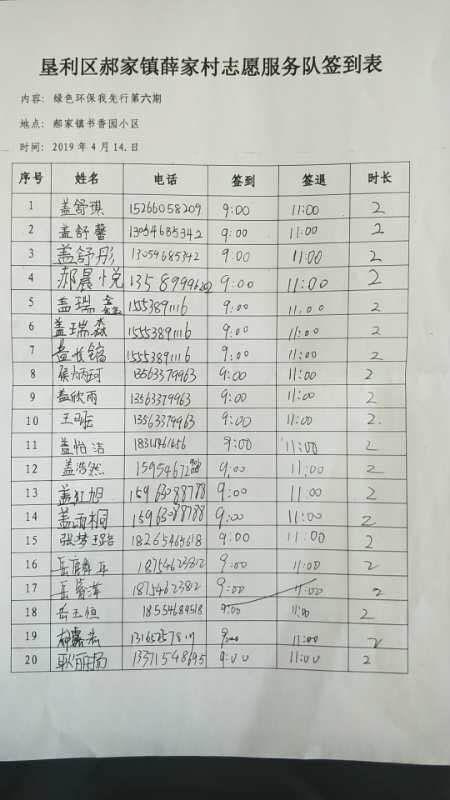 垦利区郝家镇薛家村志愿服务队签到表
内容: 绿色环保我先行第六期
地点: 郝家镇书香园小区
时间: 2019 年 4 月 14.日
序号 姓名 电话 签到 签退 时长
1 盖舒琪 15266058209 9:00 11:00 2
2 盖舒馨 13054685342 9:00 11:00 2
3 盖舒彤 13054685342 9:00 11:00 2
4 郝晨悦 9:00 11:00 2
5 盖瑞鑫 15553891116 9:00 11:00 2
6 盖瑞淼 15553891116 9:00 11:00 2
7 15553891116 9:00 11:00 2
8 13563379963 9:00 11:00 2
9 盖欣雨 13563379963 9:00 11:00 2
10 13563379963 9:00 11:00 2.
11 盖怡洁 9:00 11:00 2
12 盖浩然 9:00 11:00 2
13 盖红旭 15963088788 9:00 11:00 2
14 盖雨桐 15963088788 9:00 11:00 2
15 18265465618 9:00 11:00 2
16 18754623812 9:00 11:00 2
17 18754623812 9:00 11:00 2
18 岳玉恒 18554689518 9:00 11:00 2
19 9:00 11:00 2
20 13371548695 9:00 11:00 2